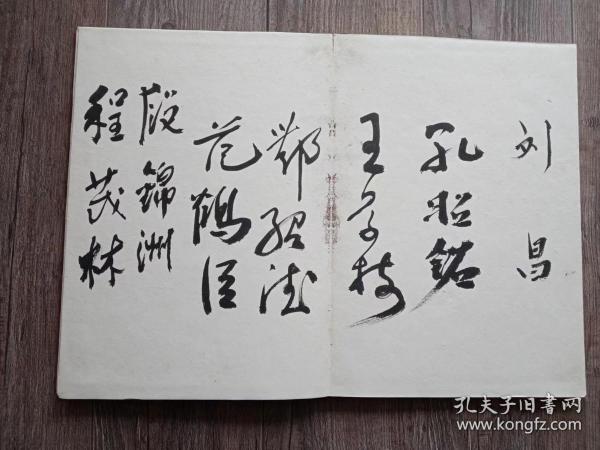 刘昌
孔昭铭
王学
鄭绍德
范鹤臣
殷锦洲
程茂林
孔夫子旧書网
www.kongfz.com